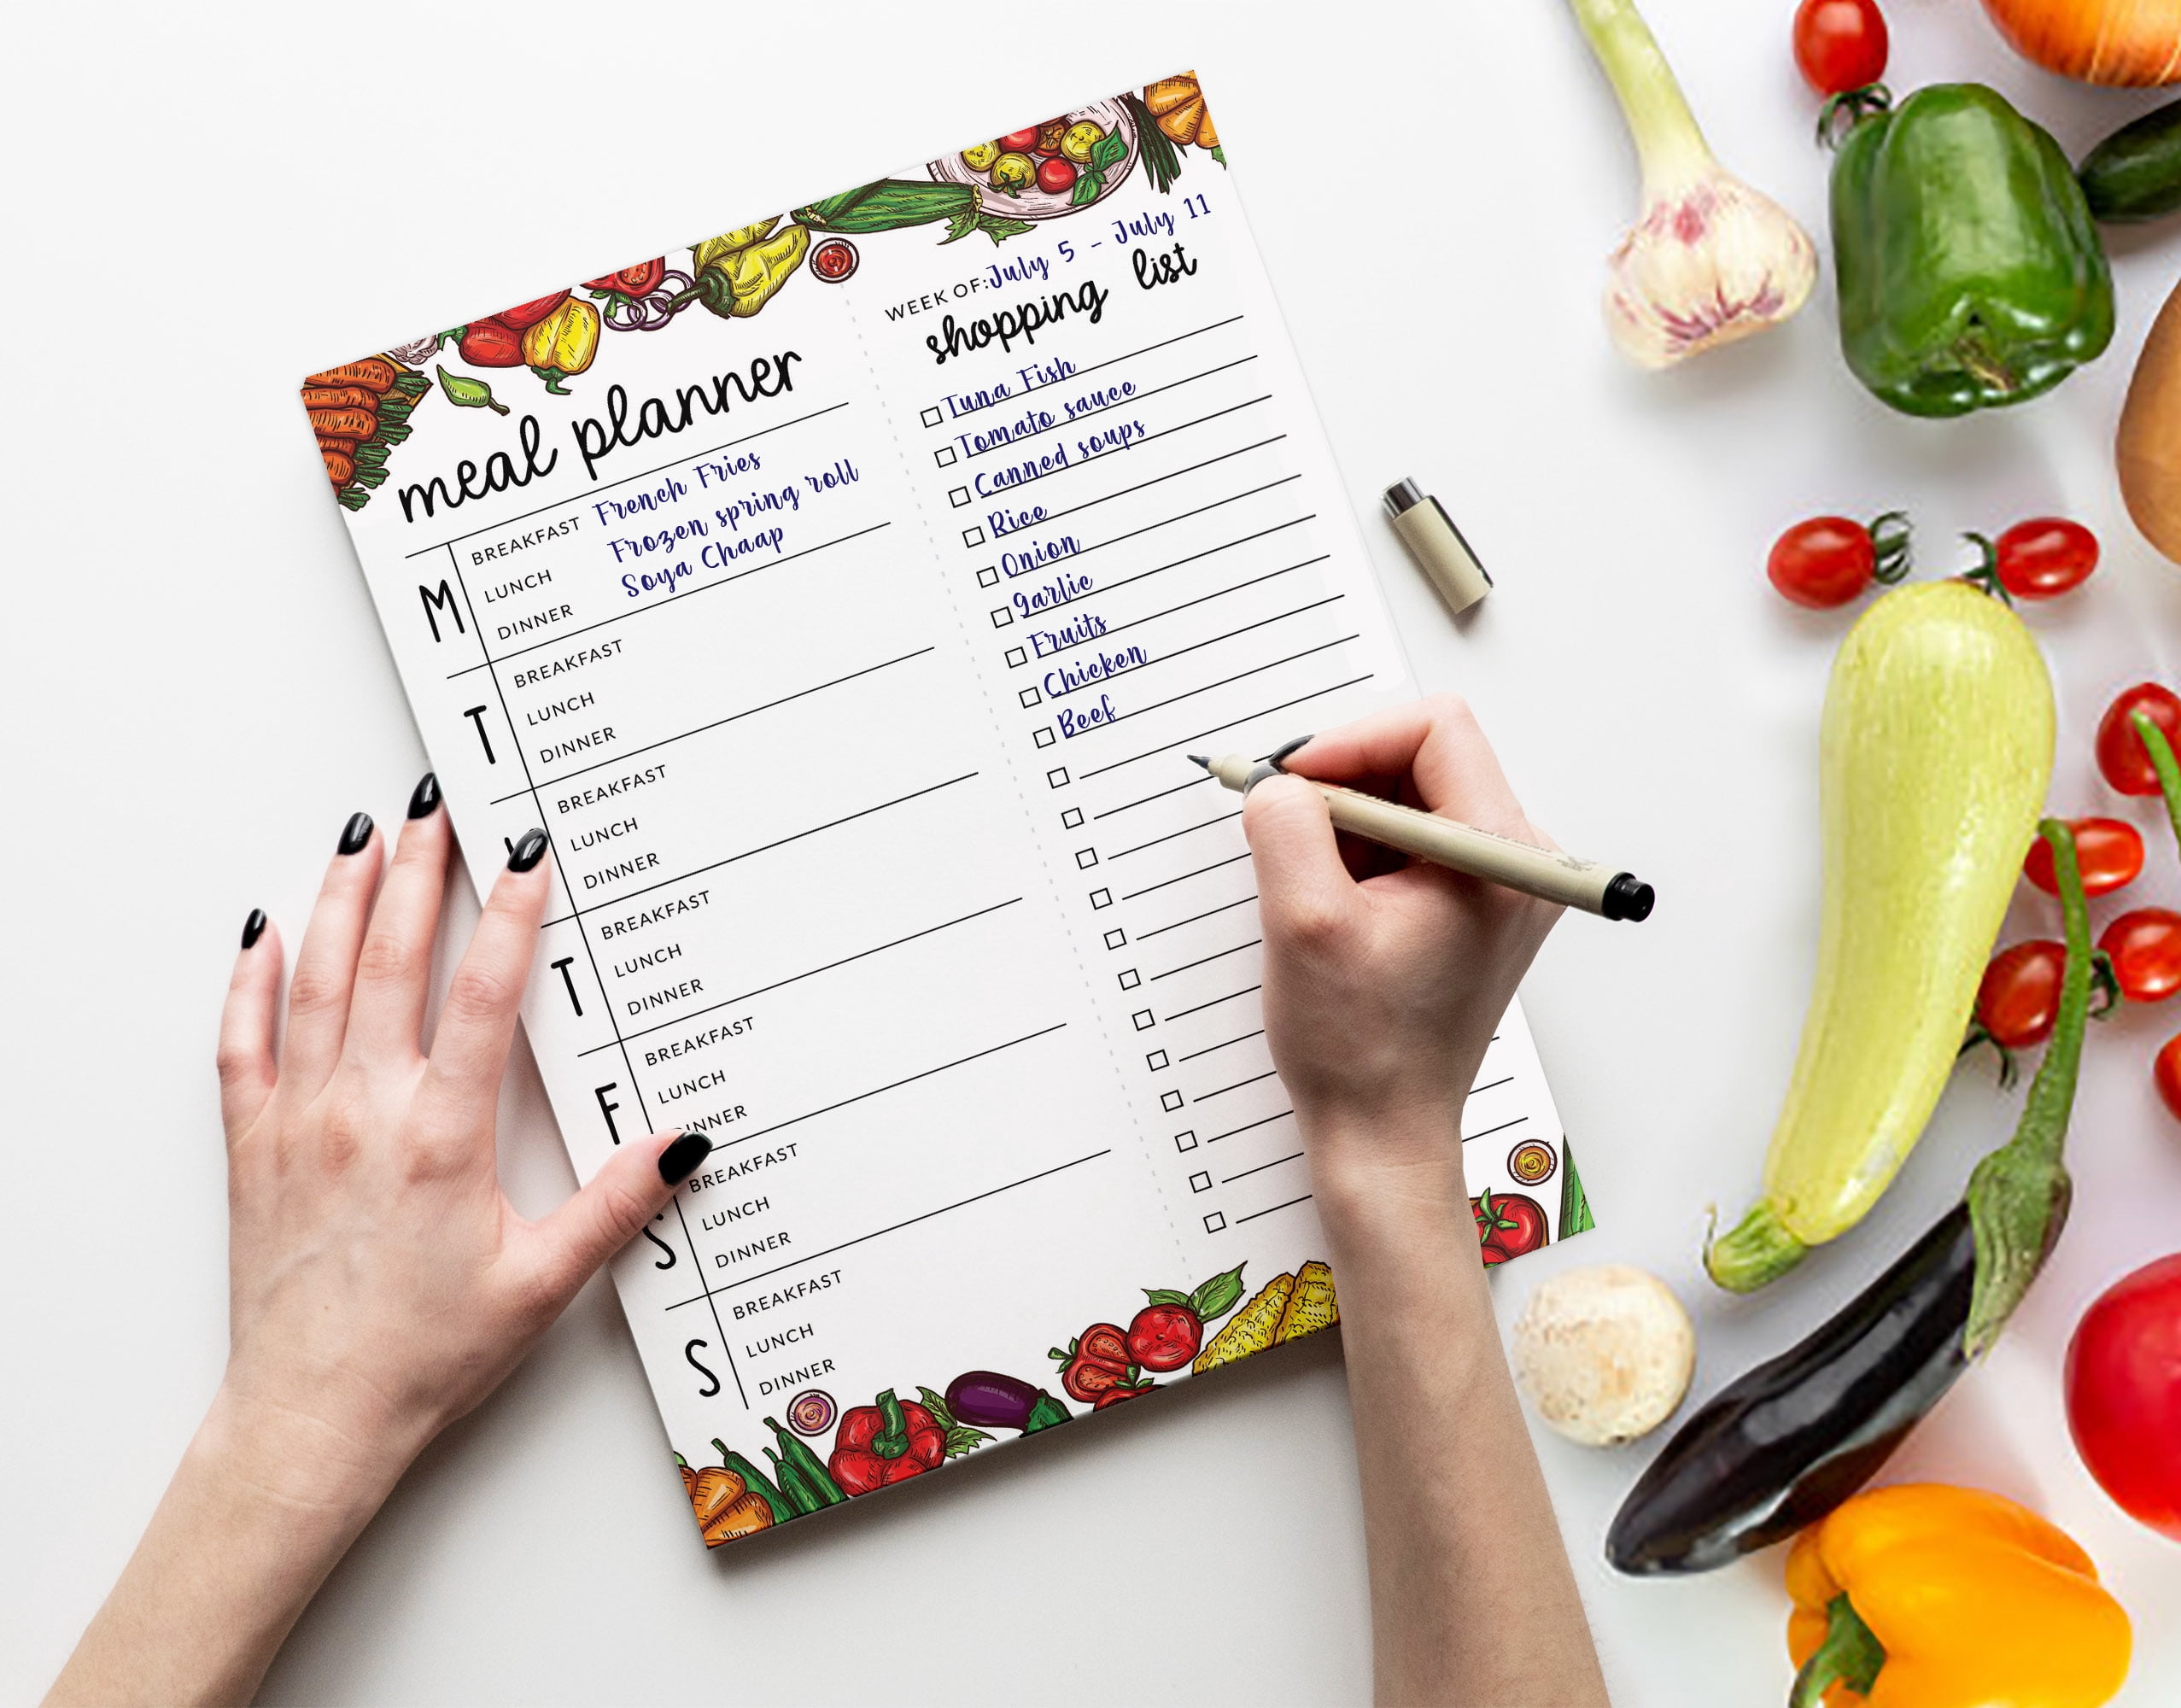 meal planner
M
BREAKFAST French Fries
LUNCH Frozen spring roll
DINNER Soya Chaap
T
BREAKFAST
LUNCH
DINNER
BREAKFAST
LUNCH
DINNER
T
BREAKFAST
LUNCH
DINNER
F
BREAKFAST
LUNCH
DINNER
S
BREAKFAST
LUNCH
DINNER
S
BREAKFAST
LUNCH
DINNER
WEEK OF: July 5 - July 11
shopping list
Tuna Fish
Tomato sauce
Canned soups
Rice
Onion
garlic
Fruits
Chicken
Beef